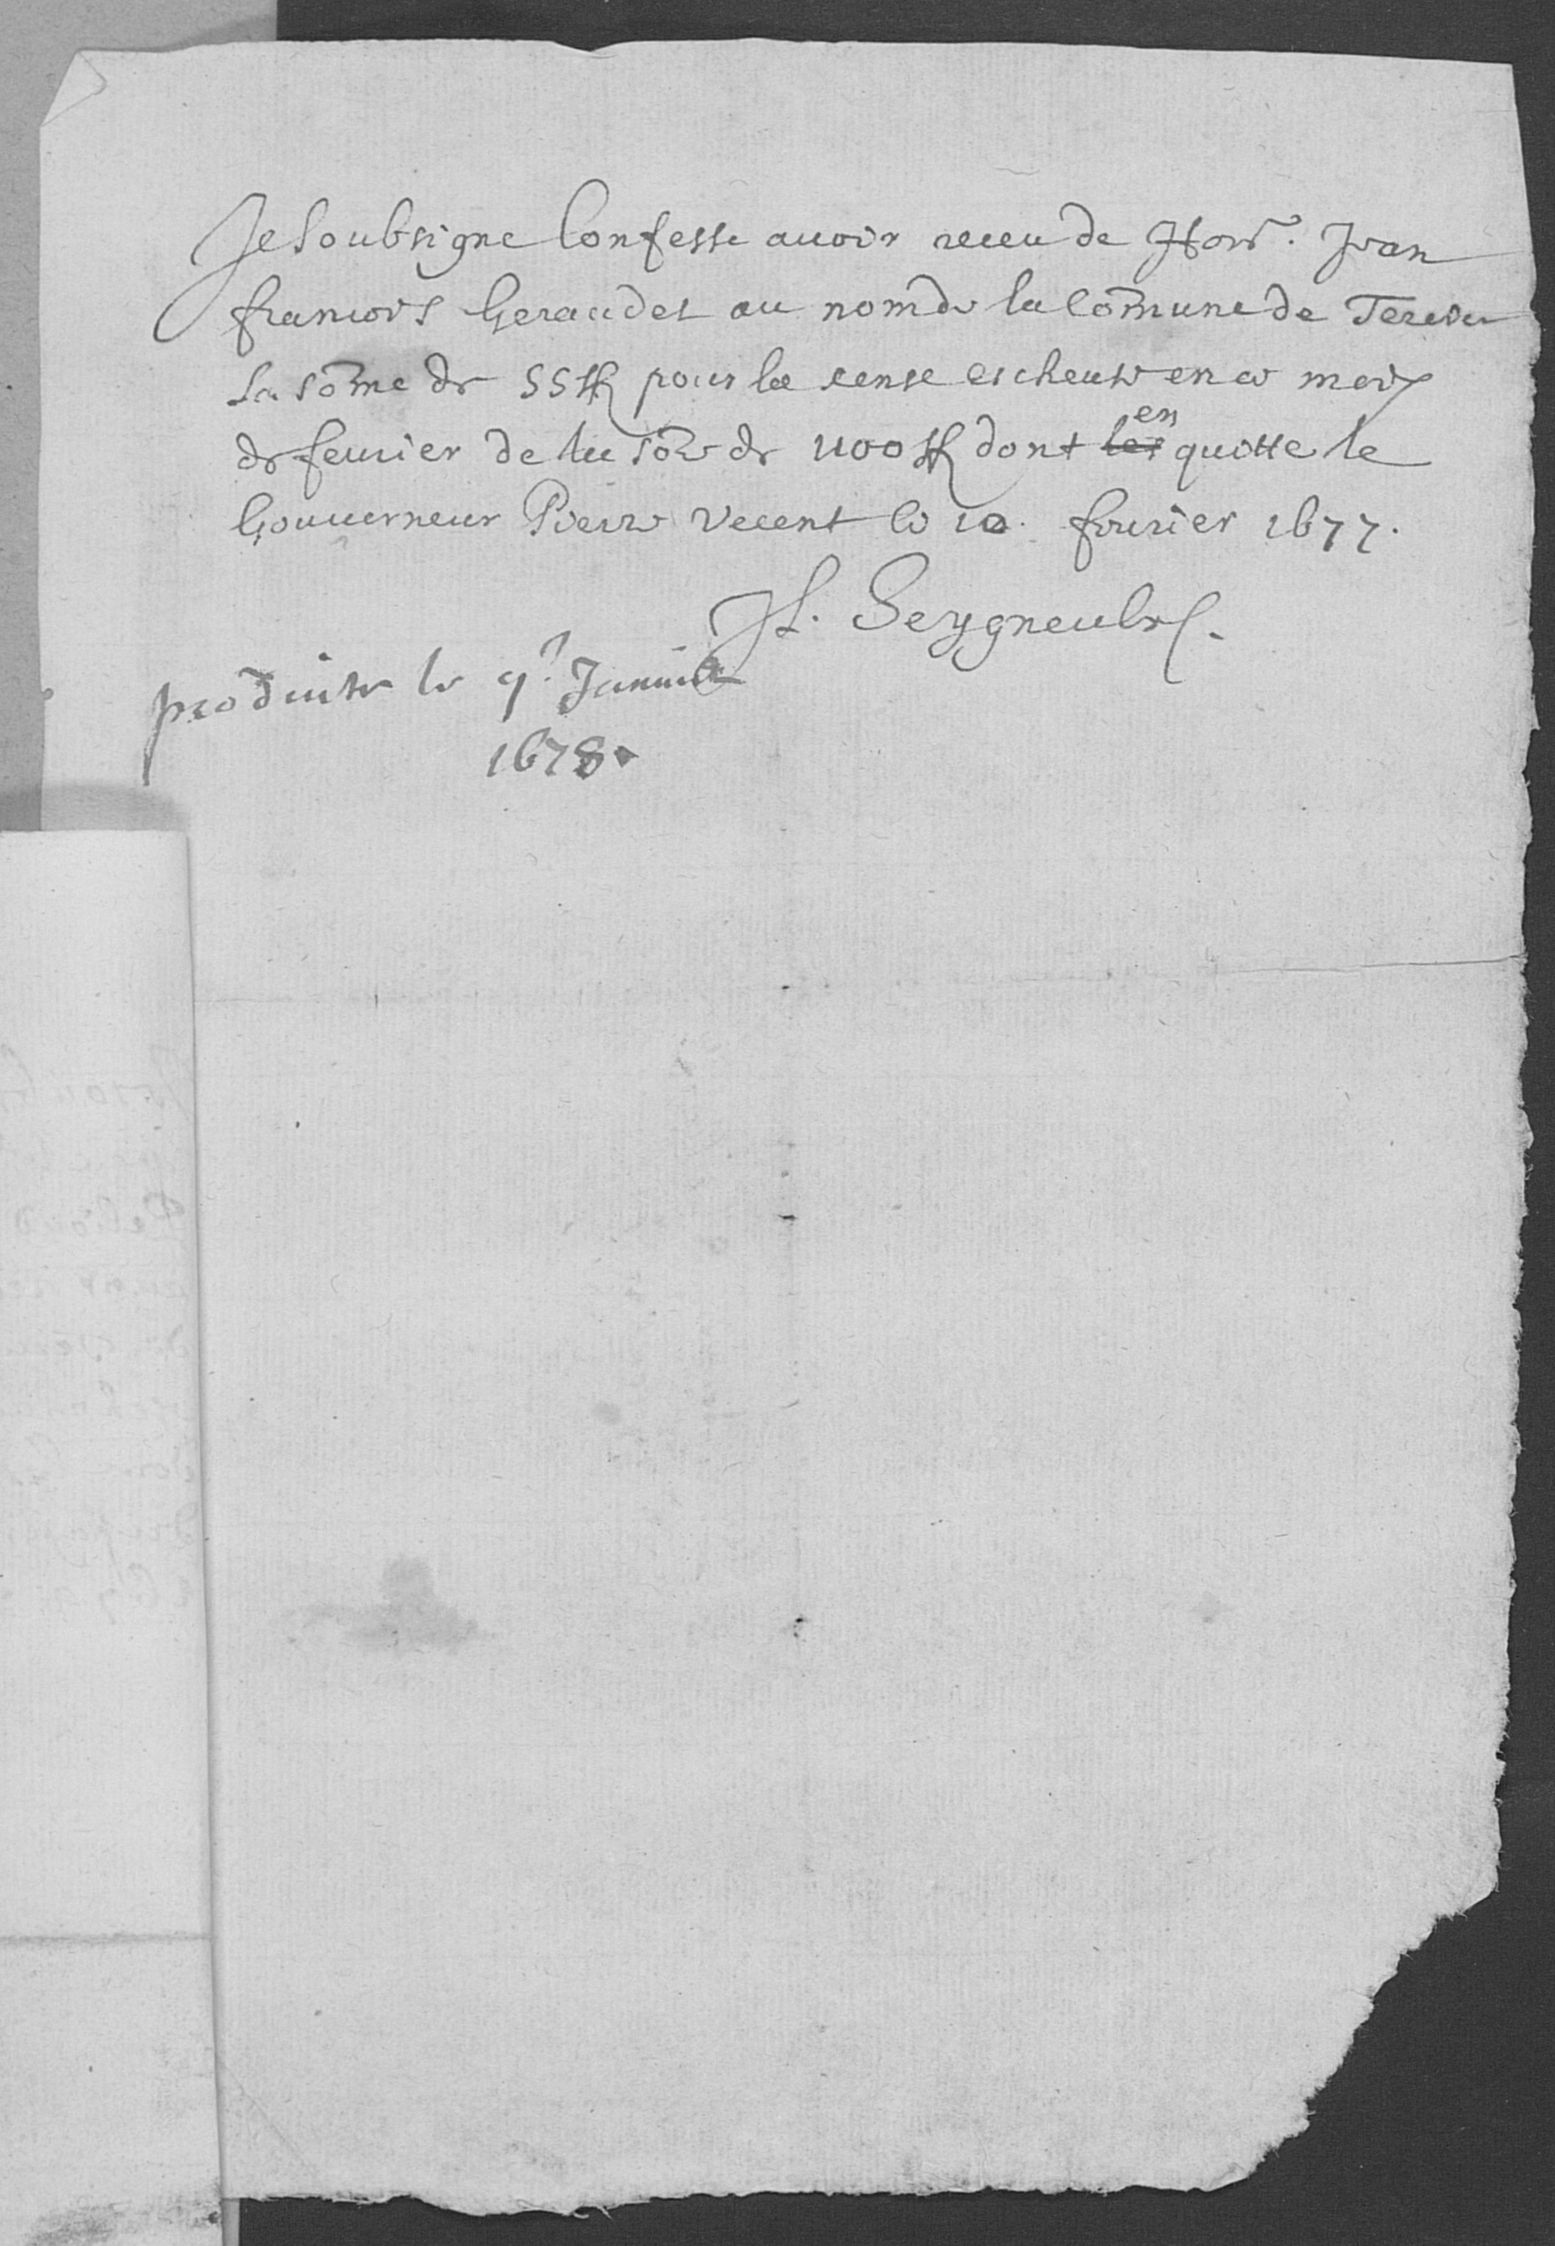 Je Soubsigne Confesse avoir receu de Hon. Jean
francois Geraudet au nom de la Comune de Terevin
la some de 55 ff pour la cense escheute en ce mois
de fevrier de la some de 1100 ff dont les en quitte le
Gouverneur Pierre Vecent le 10. fevrier 1677.
Seygneulx.
produite le 9 Janvier
1678.